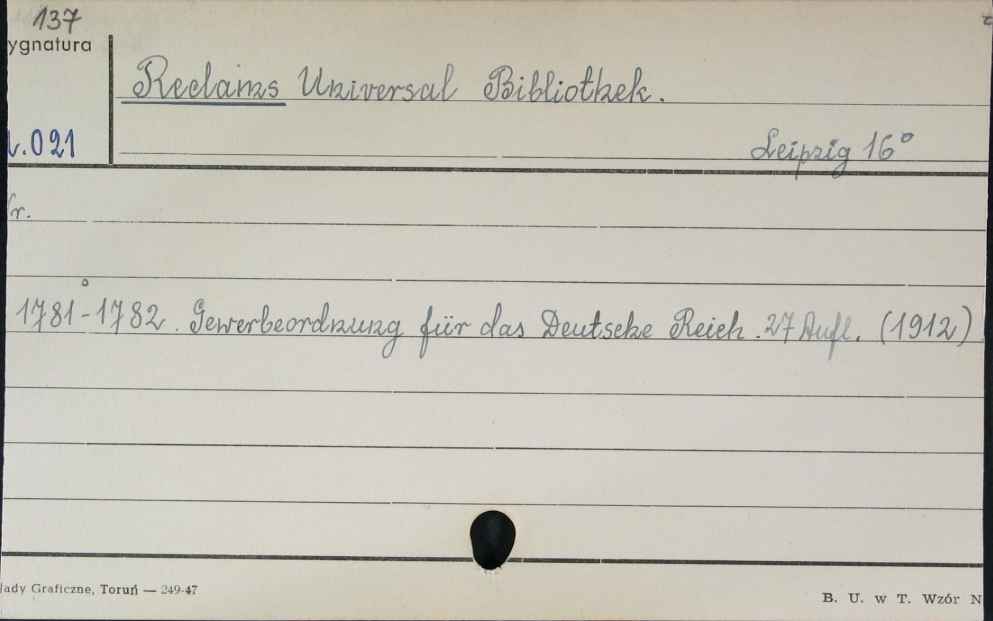 137
ygnatura
Reclams Universal Bibliothek.
.021
Leipzig 16°
r.
1781-1782. Gewerbeordnung für das Deutsche Reich. 27 Aufl. (1912)
łady Graficzne, Toruń — 249-47
B. U. w T. Wzór N